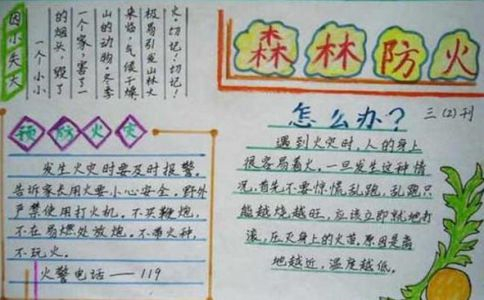 因小失大
一个小小
的烟头，毁了
一个家，害了一
山的动物。冬季
来临，气候干燥，
极易引发山林火
火。切记！切记！
森林防火
三（2）刊
预防火灾
发生火灾时要及时报警。
告诉家长用火要小心安全。野外
严禁使用打火机。不买鞭炮，
不在易燃处放炮。不带火种，
不玩火。
火警电话——119
怎么办？
遇到火灾时，人的身上
很容易着火。一旦发生这种情
况，首先不要惊慌乱跑，乱跑只
能越烧越旺，应该立即就地打
滚，压灭身上的火苗。原因是离
地越近，温度越低。